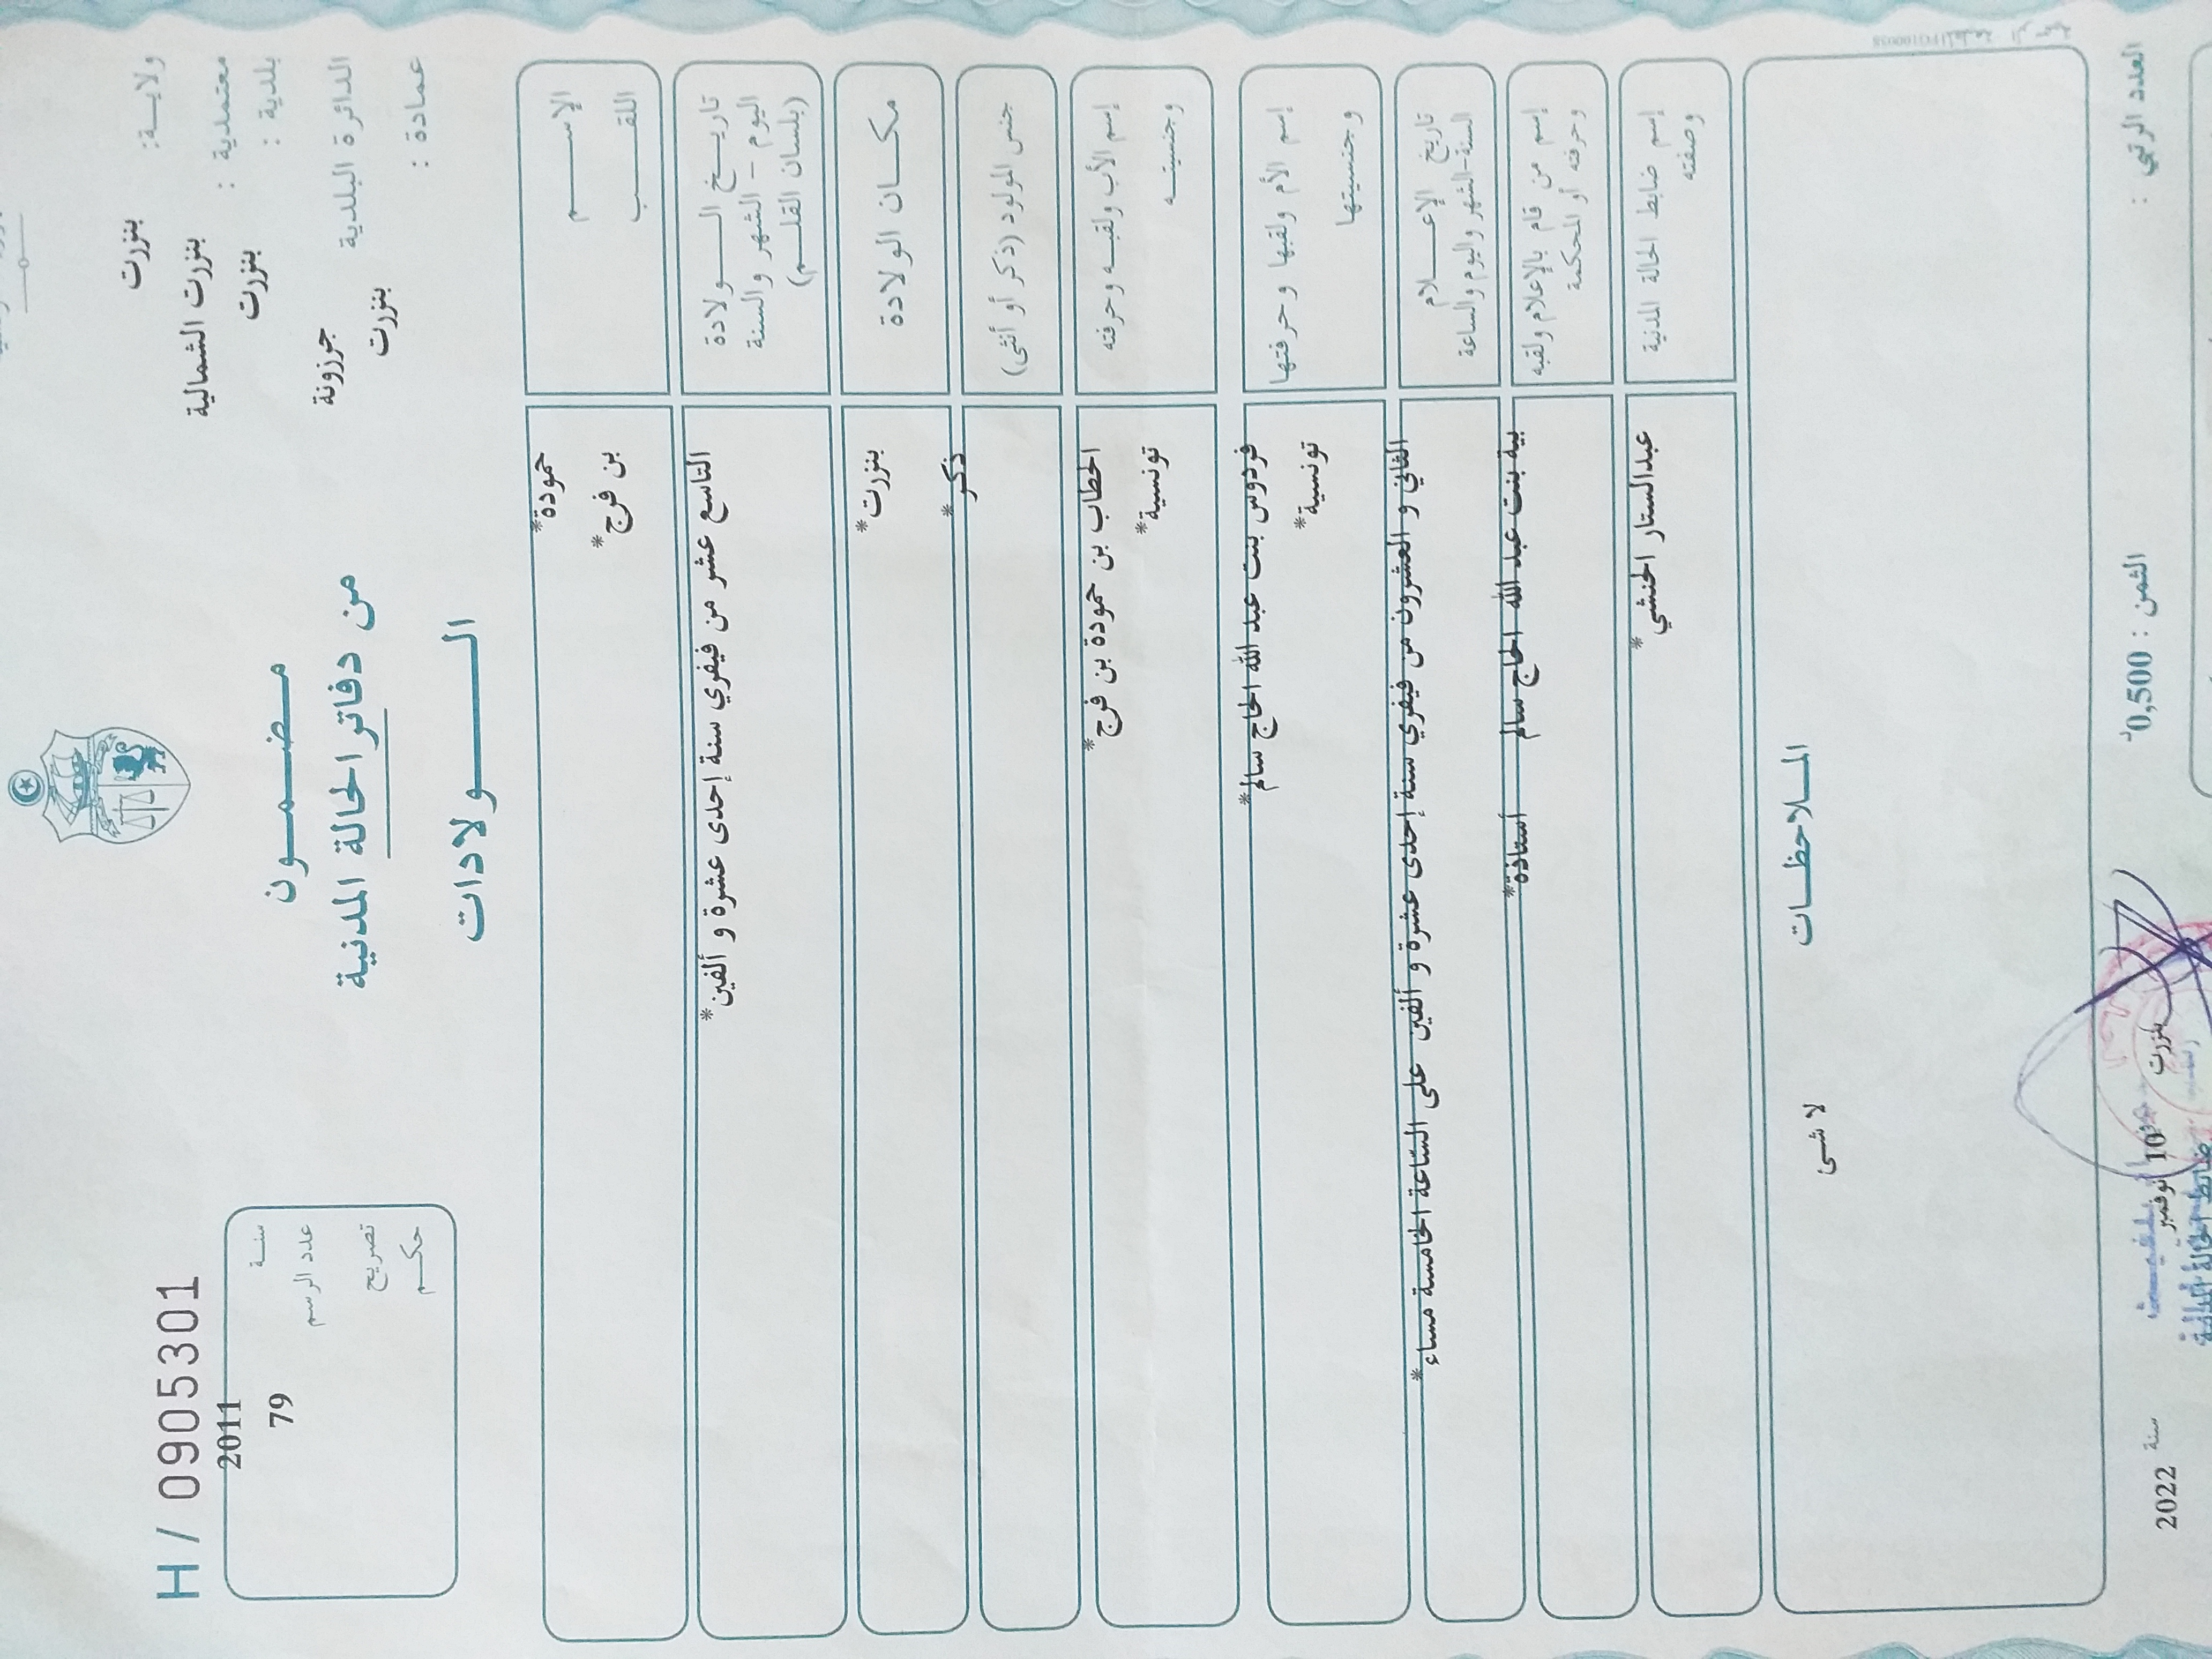 ولايـــة: بنزرت
معتمدية : بنزرت الشمالية
بلدية : بنزرت
الدائرة البلدية جرزونة
عمادة : بنزرت
H / 0905301
سنـــة 2011
عدد الرسم 79
تصريح
حكـــم
مـضـمـــون
من دفاتر الحالة المدنية
الـــــولادات
الإســـــم حمودة*
اللقـــــب بن فرج*
تاريـــخ الـــــولادة
اليوم - الشهر والسنة
(بلسان القلـــم)
التاسع عشر من فيفري سنة إحدى عشرة و ألفين*
مكـــان الولادة بنزرت*
جنس المولود (ذكر أو أنثى) ذكر*
إسم الأب ولقبـــه وحرفته الحطاب بن حمودة بن فرج*
وجنسيتـــه تونسية*
إسم الأم ولقبها وحرفتها فردوس بنت عبد الله الحاج سالم*
وجنسيتها تونسية*
تاريخ الإعـــــلام
السنة-الشهر واليوم والساعة
الثاني و العشرون من فيفري سنة إحدى عشرة و ألفين على الساعة الخامسة مساء*
إسم من قام بالإعلام ولقبه
وحرفته أو المحكمة
بية بنت عبد الله الحاج سالم أستاذة*
إسم ضابط الحالة المدنية
وصفته
عبدالستار الحنشي*
المـــلاحظـــات
لا شئ
العدد الرتبي :
الثمن : 0,500د
بنزرت في 10 نوفمبر سنة 2022
ضابط الحالة المدنية